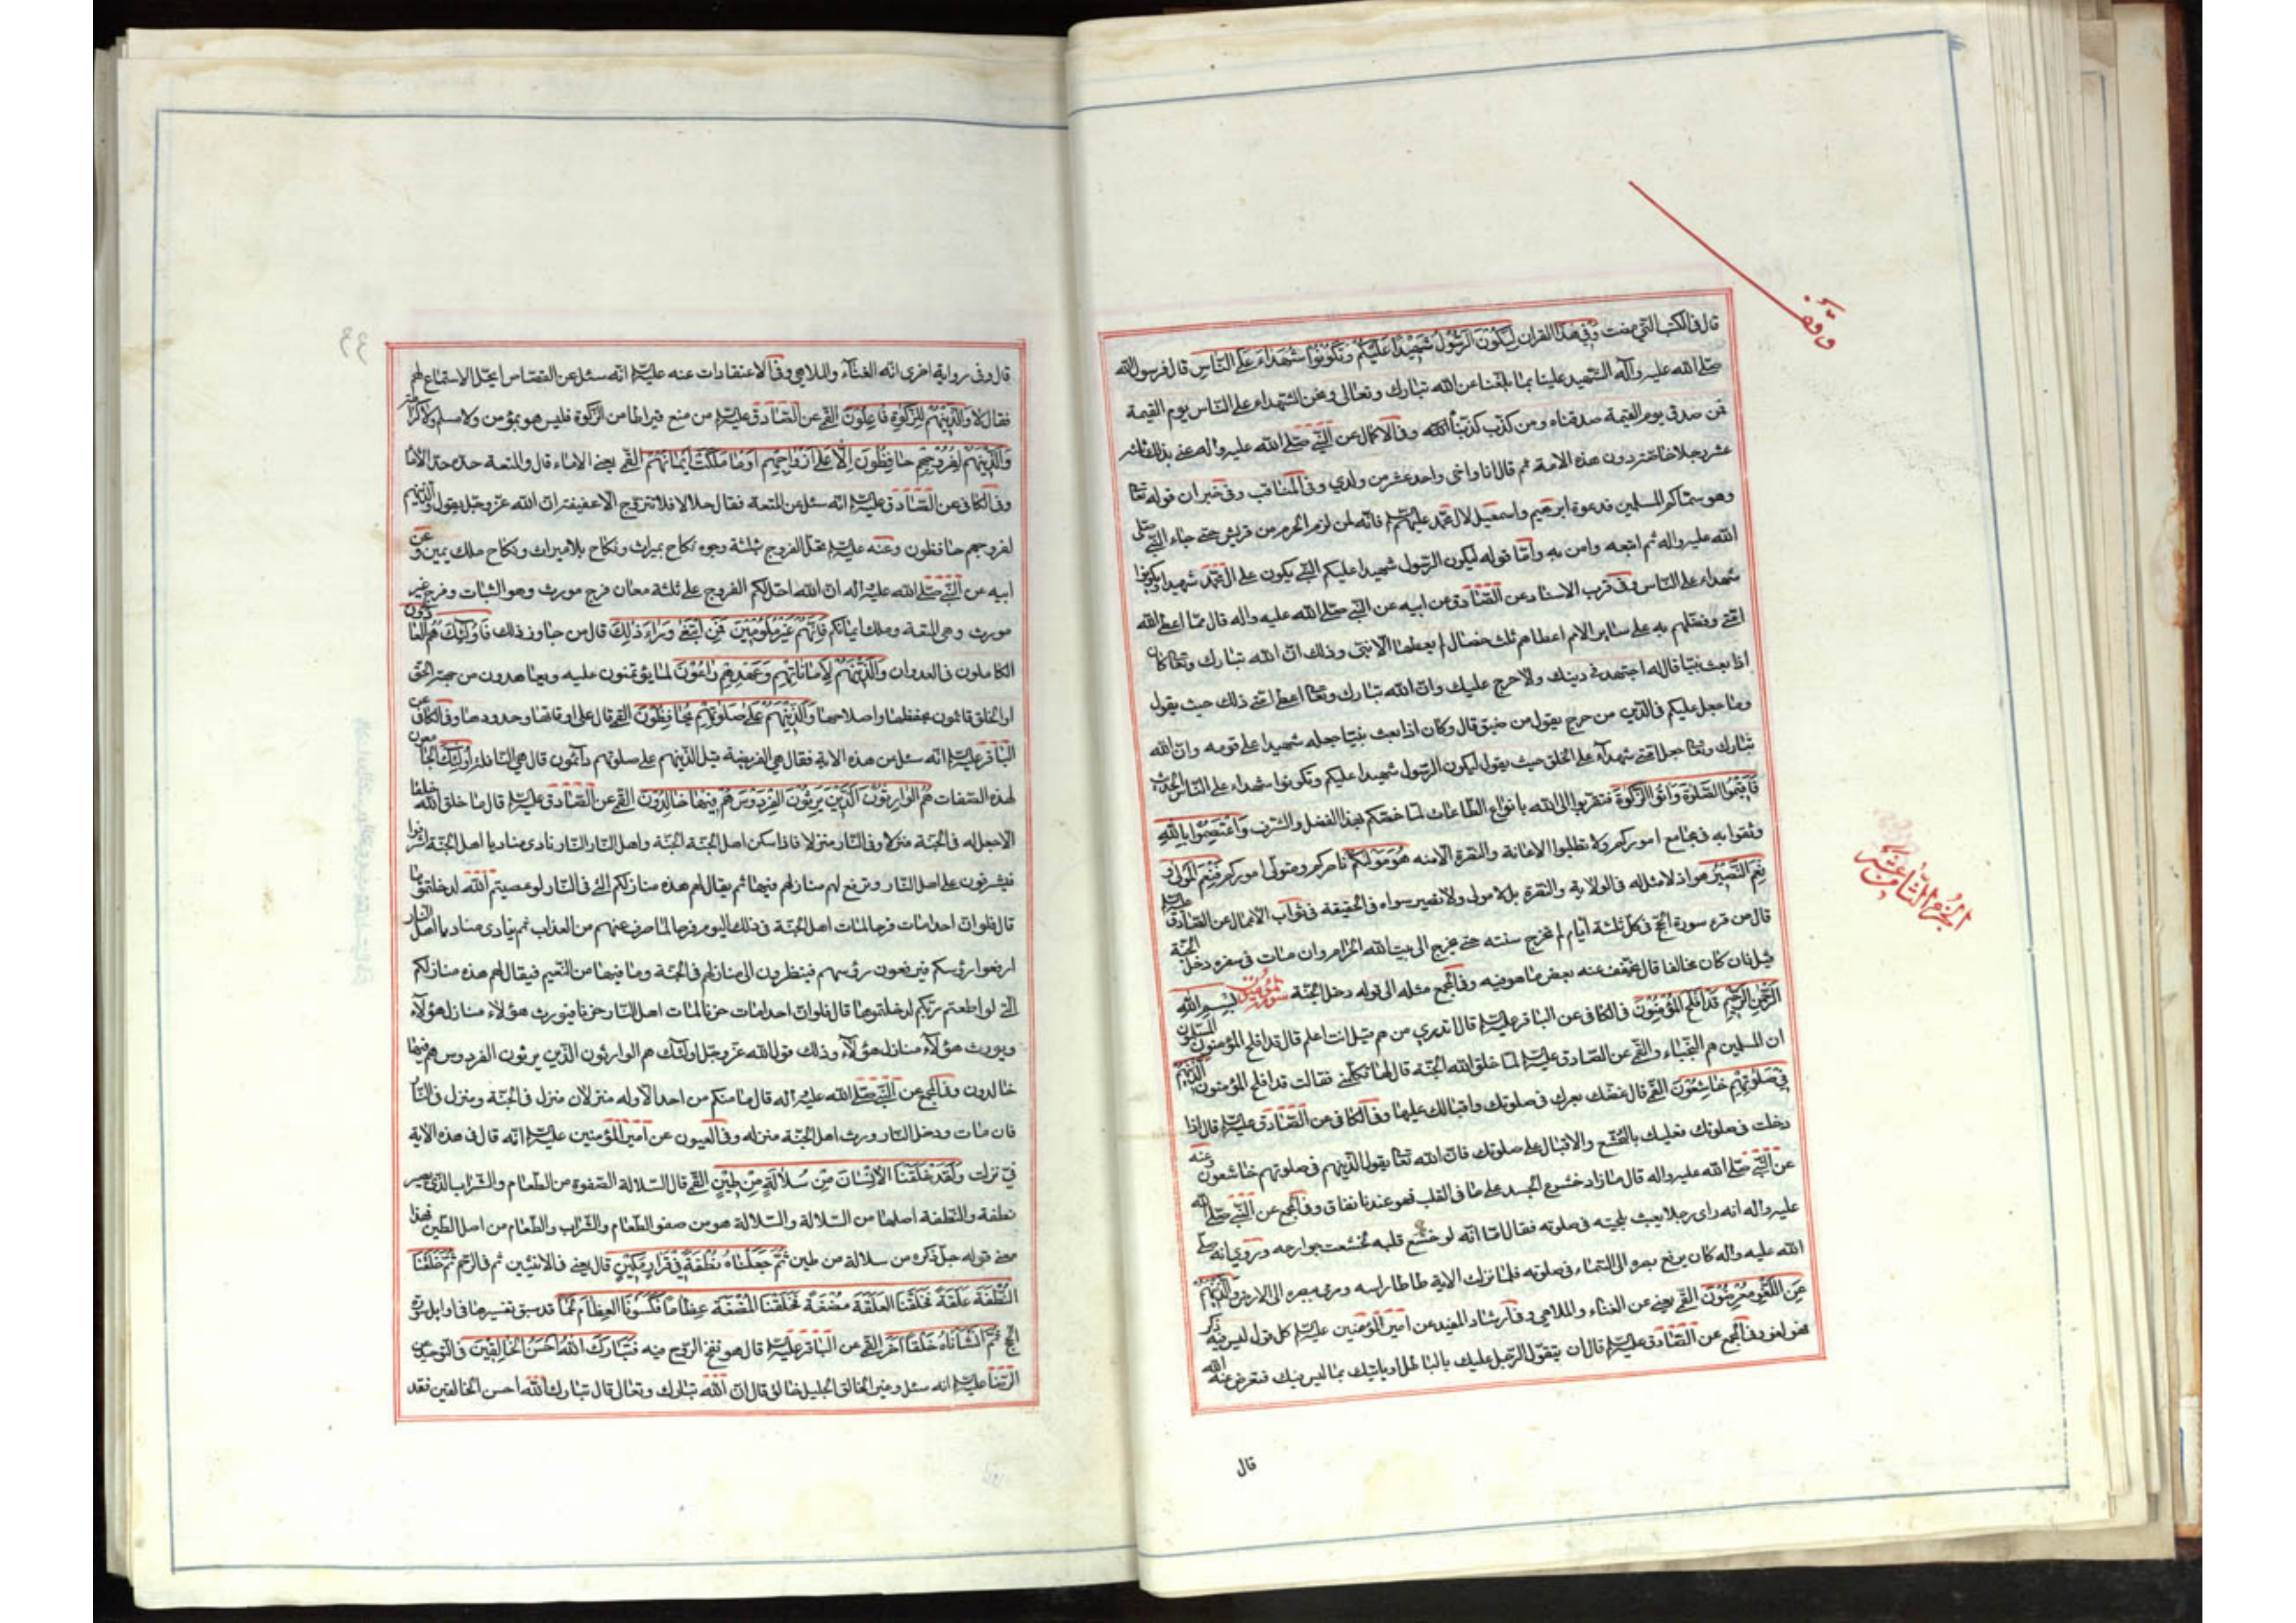 وقف
قال في الكتب التي مضت وفي هذا القران لِيَكُونَ الرَّسُولُ شَهِيدًا عَلَيْكُمْ وَتَكُونُوا شُهَدَاءَ عَلَى النَّاسِ قال فرسول الله
صلى الله عليه وآله الشهيد علينا بما بلغنا عن الله تبارك وتعالى ونحن الشهداء على الناس يوم القيمة
فمن صدق يوم القيمة صدقناه ومن كذب كذبناه وفي الاكمال عن النبي صلى الله عليه واله عنى بذلك ثلثة
عشر رجلا خاصة دون هذه الامة ثم قال انا واخي واحد عشر من ولدي وفي المناقب وفي خبر ان قوله تعا
هو سماكم المسلمين فدعوة ابرهيم واسمعيل لال محمد عليهم فانه لمن لزم الحرم من قريش حتى جاء النبي صلى
الله عليه واله ثم اتبعه وامن به واما قوله ليكون الرسول شهيدا عليكم النبي يكون على ال محمد شهيدا ويكونوا
شهداء على الناس وفي قرب الاسناد عن الصادق عن ابيه عن النبي صلى الله عليه واله قال مما اعطى الله
امتي وفضلهم به على ساير الامم اعطاهم ثلث خصال لم يعطها الا نبي وذلك ان الله تبارك وتعا كان
اذا بعث نبيا قال له اجتهد في دينك ولا حرج عليك وان الله تبارك وتعا اعطى امتي ذلك حيث يقول
وما جعل عليكم في الدين من حرج يقول من ضيق قال وكان اذا بعث نبيا جعله شهيدا على قومه وان الله
تبارك وتعا جعل امتي شهداء على الخلق حيث يقول ليكون الرسول شهيدا عليكم وتكونوا شهداء على الناس الحديث
فَأَقِيمُوا الصَّلٰوةَ وَاٰتُوا الزَّكٰوةَ فتقربوا الى الله بانواع الطاعات لما خصكم بهذا الفضل والشرف وَاعْتَصِمُوا بِاللّٰهِ
وثقوا به في مجامع اموركم ولا تطلبوا الاعانة والنصرة الا منه هُوَ مَوْلٰكُمْ ناصركم ومتولي اموركم فَنِعْمَ الْمَوْلٰى وَ
نِعْمَ النَّصِيرُ هو اذ لا مثل له في الولاية والنصرة بل لا مولى ولا نصير سواه في الحقيقة في ثواب الاعمال عن الصادق عليه
قال من قرء سورة الحج في كل ثلثة ايام لم تخرج سنته حتى يخرج الى بيت الله الحرام وان مات في سفره دخل الجنة
قيل فان كان مخالفا قال يخفف عنه بعض ما هو فيه وفي المجمع مثله الى قوله دخل الجنة سورة المؤمنين بِسْمِ اللّٰهِ
الرَّحْمٰنِ الرَّحِيمِ قَدْ أَفْلَحَ الْمُؤْمِنُونَ في الكافي عن الباقر عليه قال اتدري من هم قيل انت اعلم قال قد افلح المؤمنون المسلمون
ان المسلمين هم النجباء والقمي عن الصادق عليه لما خلق الله الجنة قال لها تكلمي فقالت قد افلح المؤمنون الَّذِينَ هُمْ
فِي صَلٰوتِهِمْ خَاشِعُونَ القمي قال غضك بصرك في صلوتك واقبالك عليها وفي الكافي عن الصادق عليه قال اذا
دخلت في صلوتك فعليك بالتخشع والاقبال على صلوتك فان الله تعا يقول الذين هم في صلوتهم خاشعون وعنه
عن النبي صلى الله عليه واله قال ما زاد خشوع الجسد على ما في القلب فهو عندنا نفاق وفي المجمع عن النبي صلى الله
عليه واله انه راى رجلا يعبث بلحيته في صلوته فقال اما انه لو خشع قلبه لخشعت جوارحه وروي انه صلى
الله عليه واله كان يرفع بصره الى السماء في صلوته فلما نزلت الاية طاطا راسه ورمى ببصره الى الارض وَالَّذِينَ هُمْ
عَنِ اللَّغْوِ مُعْرِضُونَ القمي يعني عن الغناء والملاهي وفي ارشاد المفيد عن امير المؤمنين عليه كل قول ليس فيه ذكر
فهو لغو وفي المجمع عن الصادق عليه قال ان يتقول الرجل عليك بالباطل او ياتيك بما ليس فيك فتعرض عنه لله
الجزء الثامن عشر
قال
قال وفي رواية اخرى انه الغناء والملاهي وفي الاعتقادات عنه عليه انه سئل عن القصاص ايحل الاستماع لهم
فقال لا وَالَّذِينَ هُمْ لِلزَّكٰوةِ فَاعِلُونَ القمي عن الصادق عليه من منع قيراطا من الزكوة فليس هو بمؤمن ولا مسلم ولا كرامة
وَالَّذِينَ هُمْ لِفُرُوجِهِمْ حَافِظُونَ إِلَّا عَلٰى أَزْوَاجِهِمْ أَوْ مَا مَلَكَتْ أَيْمَانُهُمْ القمي يعني الاماء قال والمتعة حدها حد الاما
وفي الكافي عن الصادق عليه انه سئل عن المتعة فقال حلال فلا تتزوج الا عفيفة ان الله عز وجل يقول والذين هم
لفروجهم حافظون وعنه عليه تحل الفروج بثلثة وجوه نكاح بميراث ونكاح بلا ميراث ونكاح ملك يمين وعن
ابيه عن النبي صلى الله عليه واله ان الله احل لكم الفروج على ثلثة معان فرج مورث وهو الثبات وفرج غير
مورث وهي المتعة وملك ايمانكم فَإِنَّهُمْ غَيْرُ مَلُومِينَ فَمَنِ ابْتَغٰى وَرَاءَ ذٰلِكَ قال من جاوز ذلك فَأُولٰئِكَ هُمُ الْعَادُونَ
الكاملون في العدوان وَالَّذِينَ هُمْ لِأَمَانَاتِهِمْ وَعَهْدِهِمْ رَاعُونَ لما يؤتمنون عليه ويعاهدون من جهة الحق
او الخلق قائمون بحفظها واصلاحها وَالَّذِينَ هُمْ عَلٰى صَلَوٰتِهِمْ يُحَافِظُونَ القمي قال على اوقاتها وحدودها وفي الكافي عن
الباقر عليه انه سئل عن هذه الاية فقال هي الفريضة قيل الذين هم على صلوتهم دائمون قال هي النافلة أُولٰئِكَ الجامعون
لهذه الصفات هُمُ الْوَارِثُونَ الَّذِينَ يَرِثُونَ الْفِرْدَوْسَ هُمْ فِيهَا خَالِدُونَ القمي عن الصادق عليه قال ما خلق الله خلقا
الا جعل له في الجنة منزلا وفي النار منزلا فاذا سكن اهل الجنة الجنة واهل النار النار نادى مناد يا اهل الجنة اشرفوا
فيشرفون على اهل النار وترفع لهم منازلهم فيها ثم يقال لهم هذه منازلكم التي في النار لو عصيتم الله لدخلتموها
قال فلو ان احدا مات فرحا لمات اهل الجنة في ذلك اليوم فرحا لما صرف عنهم من العذاب ثم ينادي مناد يا اهل النار
ارفعوا رؤسكم فيرفعون رؤسهم فينظرون الى منازلهم في الجنة وما فيها من النعيم فيقال لهم هذه منازلكم
التي لو اطعتم ربكم لدخلتموها قال فلو ان احدا مات حزنا لمات اهل النار حزنا فيورث هؤلاء منازل هؤلاء
ويورث هؤلاء منازل هؤلاء وذلك قول الله عز وجل اولئك هم الوارثون الذين يرثون الفردوس هم فيها
خالدون وفي المجمع عن النبي صلى الله عليه واله قال ما منكم من احد الا وله منزلان منزل في الجنة ومنزل في النار
فان مات ودخل النار ورث اهل الجنة منزله وفي العيون عن امير المؤمنين عليه انه قال في هذه الاية
في نزلت وَلَقَدْ خَلَقْنَا الْإِنْسَانَ مِنْ سُلَالَةٍ مِنْ طِينٍ القمي قال السلالة الصفوة من الطعام والشراب الذي يصير
نطفة والنطفة اصلها من السلالة والسلالة هو من صفو الطعام والشراب والطعام من اصل الطين فهذا
معنى قوله جل ذكره من سلالة من طين ثُمَّ جَعَلْنَاهُ نُطْفَةً فِي قَرَارٍ مَكِينٍ قال يعني في الانثيين ثم في الرحم ثُمَّ خَلَقْنَا
النُّطْفَةَ عَلَقَةً فَخَلَقْنَا الْعَلَقَةَ مُضْغَةً فَخَلَقْنَا الْمُضْغَةَ عِظَامًا فَكَسَوْنَا الْعِظَامَ لَحْمًا قد سبق تفسيرها في اوايل سورة
الحج ثُمَّ أَنْشَأْنَاهُ خَلْقًا اٰخَرَ القمي عن الباقر عليه قال هو نفخ الروح فيه فَتَبَارَكَ اللّٰهُ أَحْسَنُ الْخَالِقِينَ في التوحيد عن
الرضا عليه انه سئل وغير الخالق الجليل خالق قال ان الله تبارك وتعالى قال تبارك الله احسن الخالقين فقد